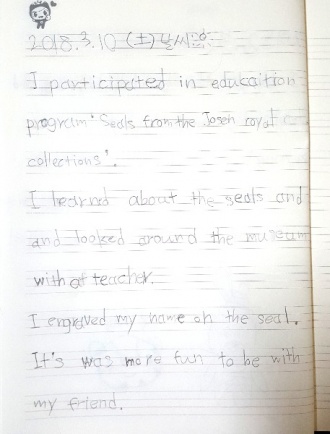 2018.3.10 (土)
I participated in edukaition
program 'Seals from the Joseh royal
collections'.
I learnd about the seals and
and looked around the museum
with teacher.
I engraved my name on the seal.
It's was more fun to be with
my friend.